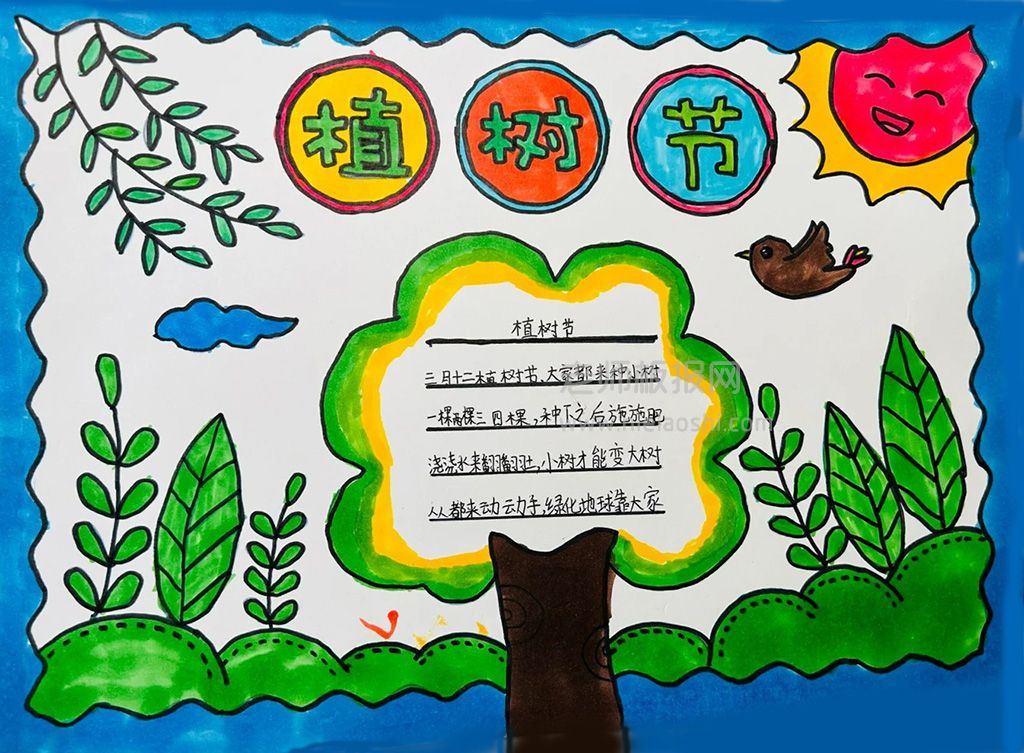 植树节
植树节
三月十二植树节、大家都来种小树
一棵两棵三四棵，种下之后施施肥
浇浇水来翻翻土，小树才能变大树
人人都来动动手，绿化地球靠大家
老师板报网